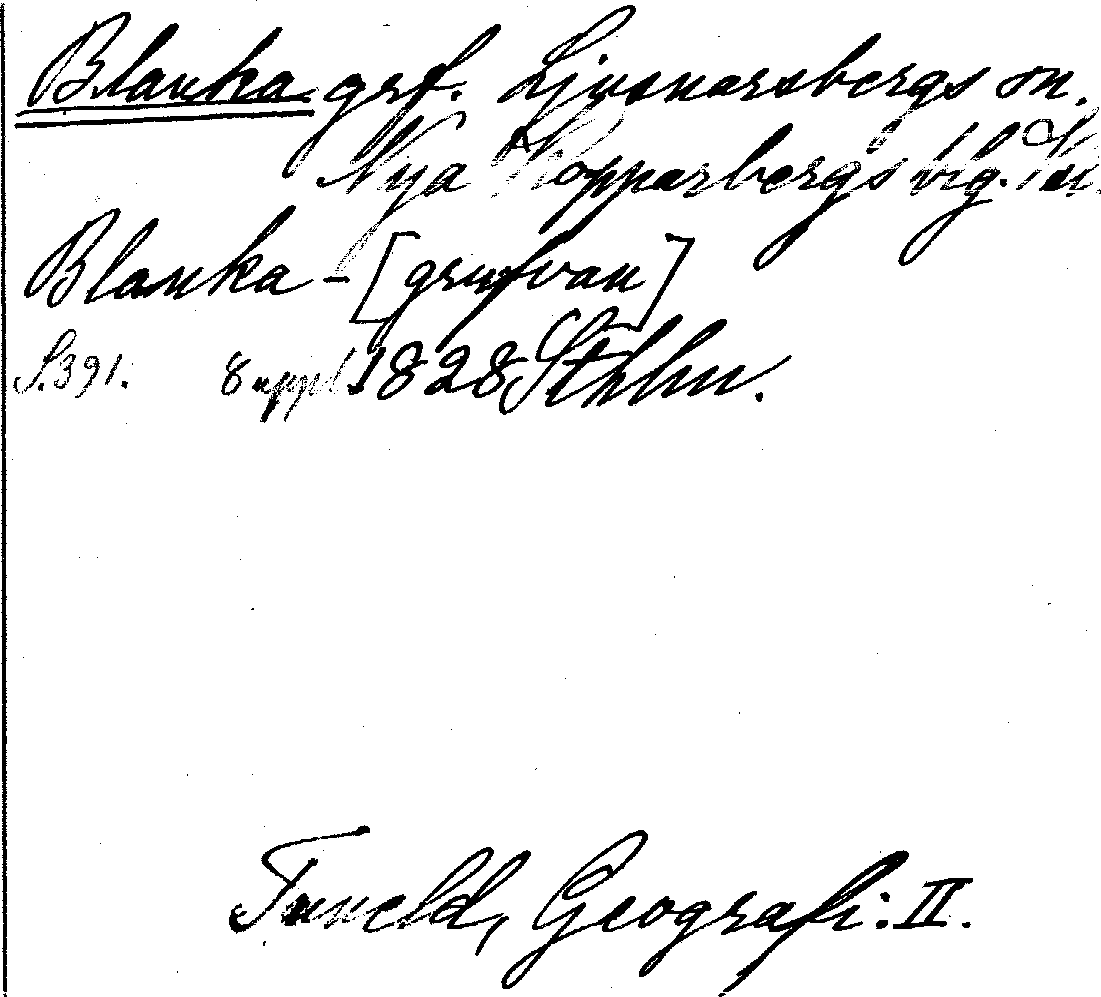 Blanka grf. Ljusnarsbergs sn.
Nya Kopparbergs blg.
Blanka - [grufvan]
S.391. 8 uppl. 1828 Sthlm.
Tuneld, Geografi: II.